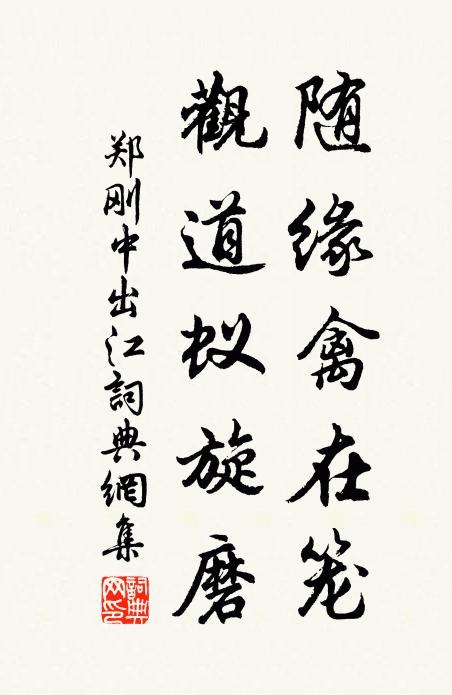 随缘禽在笼
觀道蚁旋磨
郑刚中出江詞典網集
詞典网印